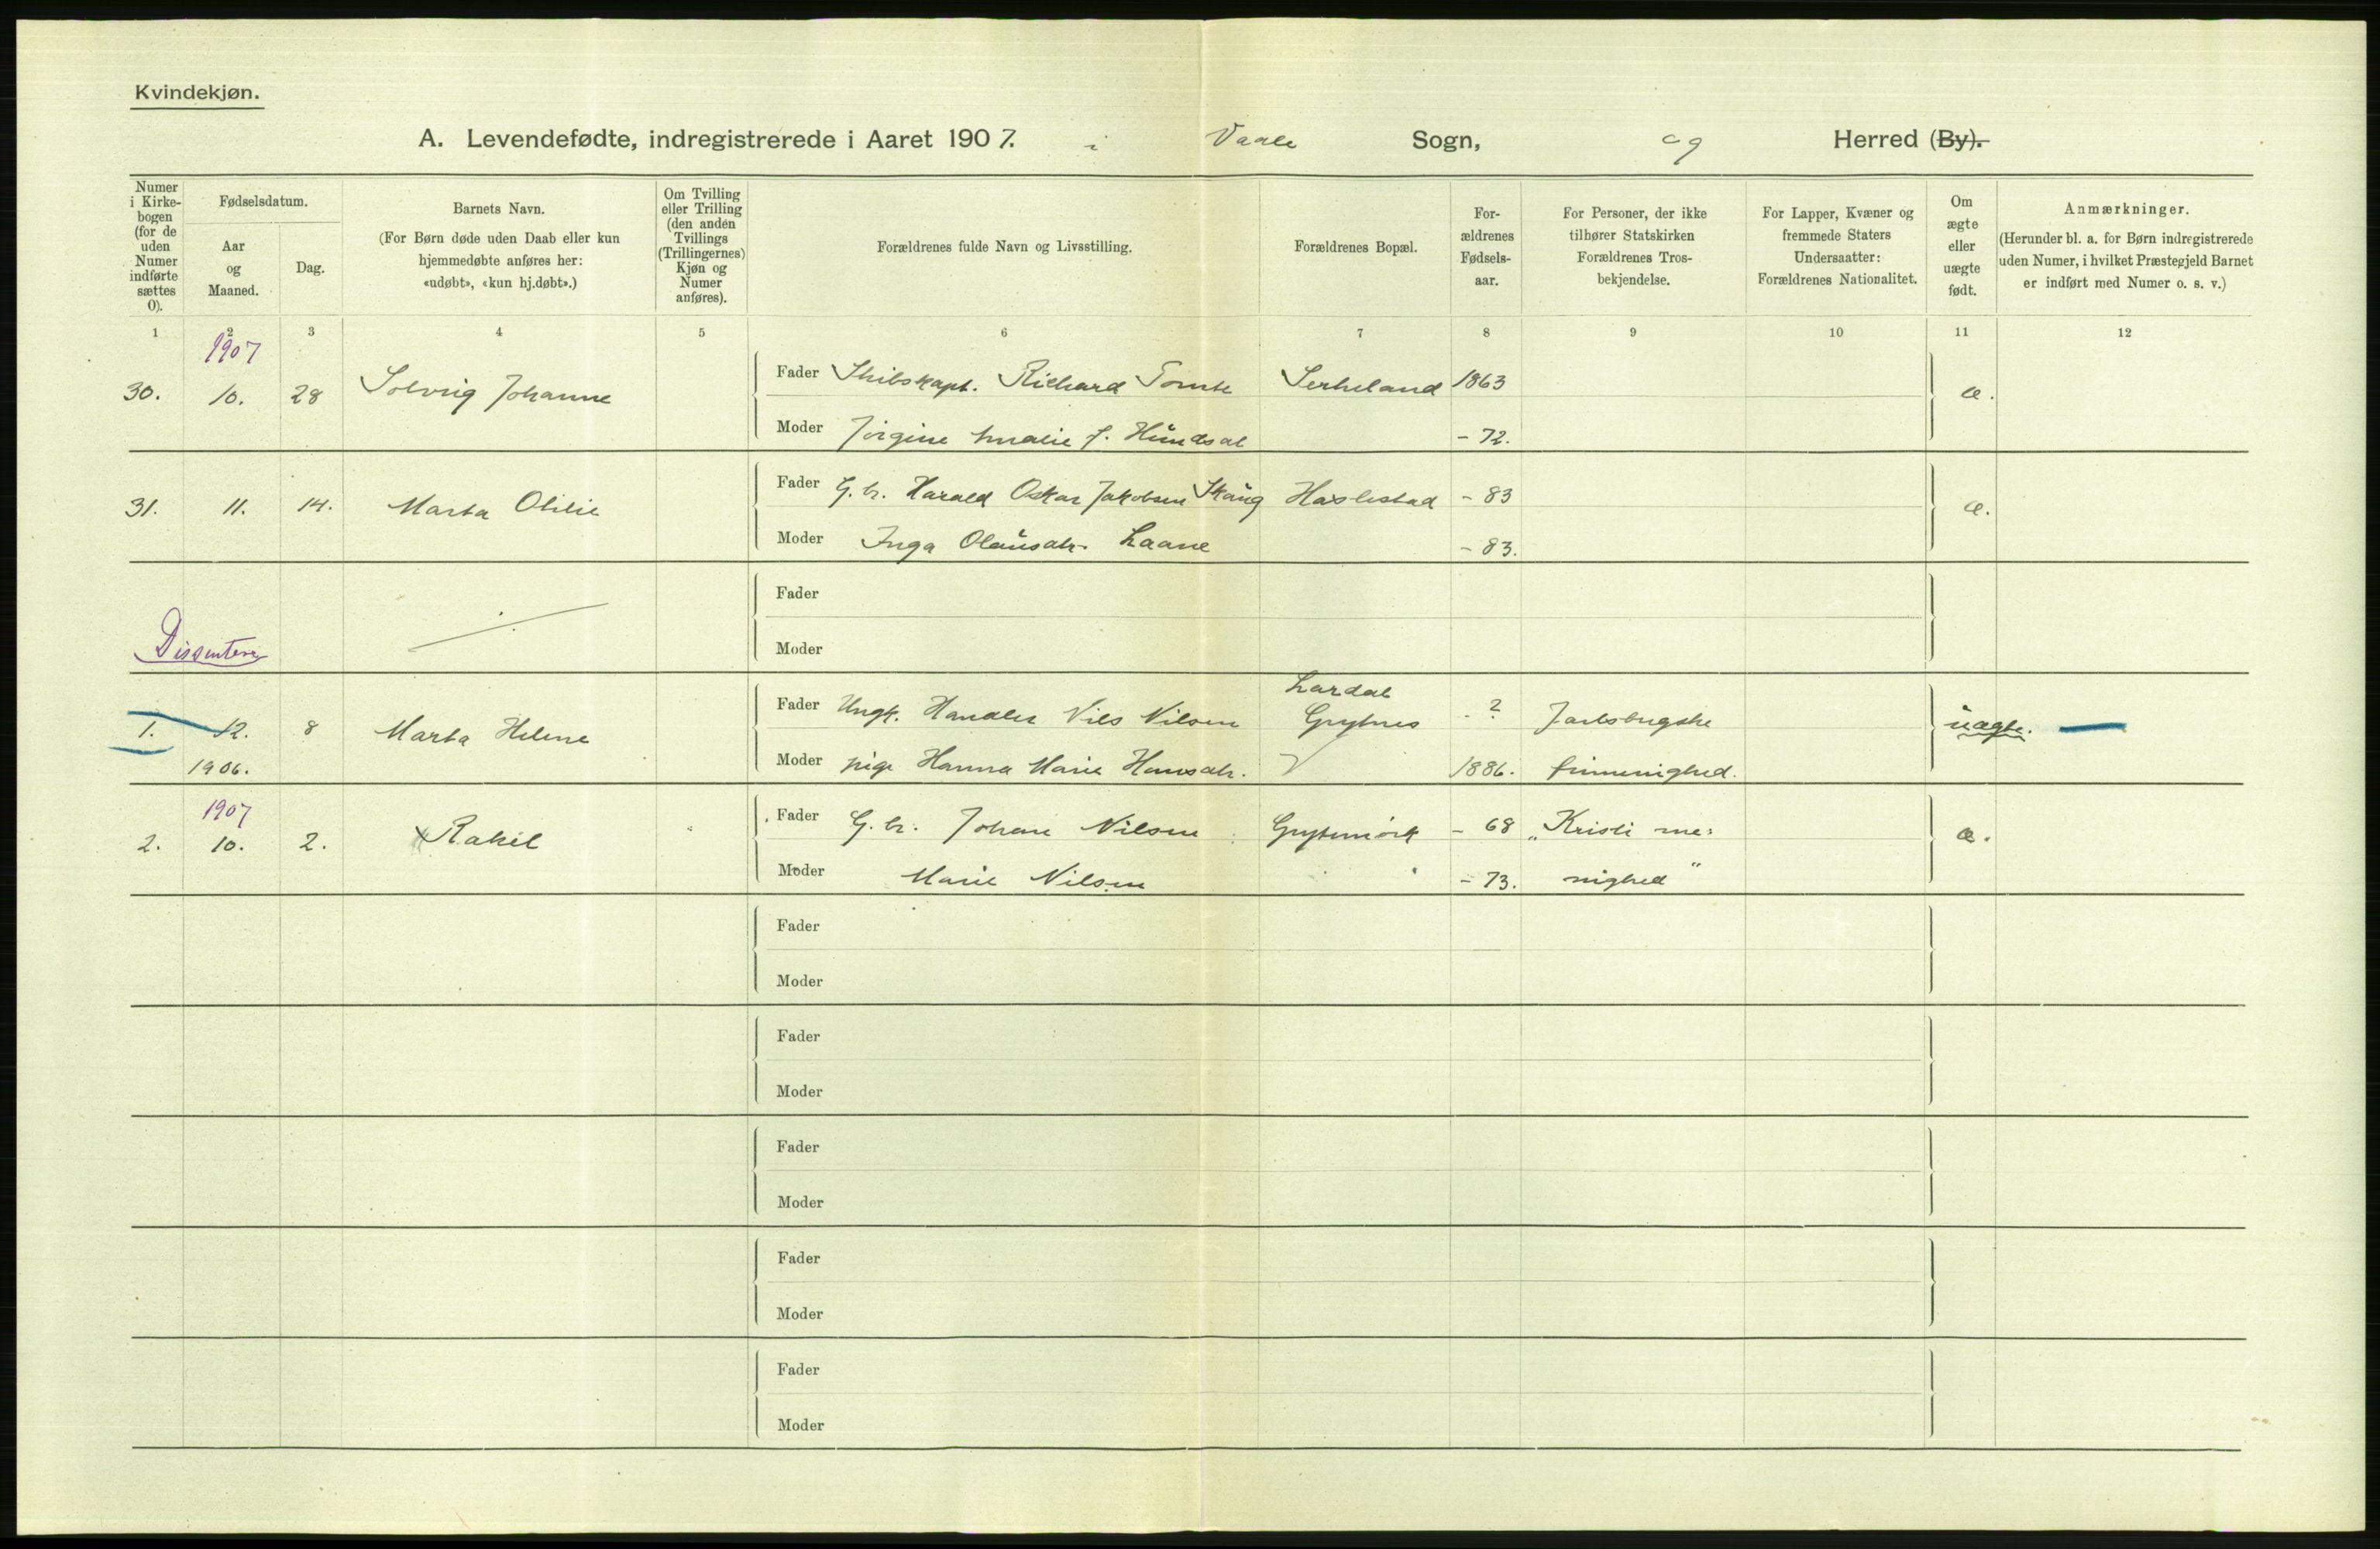 Kvindekjøn.
A. Levendefødte, indregistrerede i Aaret 1907. i Vaale Sogn, og Herred (By).
Numer i Kirkebogen (for de uden Numer indførte sættes 0).
Fødselsdatum.
Aar og Maaned.
Dag.
Barnets Navn.
(For Børn døde uden Daab eller kun
hjemmedøbte anføres her:
«udøbt», «kun hj.døbt».)
Om Tvilling eller Trilling (den anden Tvillings (Trillingernes) Kjøn og Numer anføres).
Forældrenes fulde Navn og Livsstilling.
Forældrenes Bopæl.
For-
ældrenes
Fødsels-
aar.
For Personer, der ikke
tilhører Statskirken
Forældrenes Tros-
bekjendelse.
For Lapper, Kvæner og
fremmede Staters
Undersaatter:
Forældrenes Nationalitet.
Om
ægte
eller
uægte
født.
Anmærkninger.
(Herunder bl. a. for Børn indregistrerede
uden Numer, i hvilket Præstegjeld Barnet
er indført med Numer o. s. v.)
1 2 3 4 5 6 7 8 9 10 11 12
1907
30. 10. 28 Solveig Johanne Fader Skibskapt. Richard Tomte 1863 æ.
Moder Jørgine Amalie f. - 72.
31. 11. 14. Marta Otilie Fader G.br. Harald Oskar Jakobsen Skaug Haslestad - 83 æ.
Moder Inga Olausdtr. Laane - 83.
Fader
Dissentere Moder
Lardal
1. 12. 8 Marta Helene Fader Ungk. Handler Nils Nilsen Grytnes - ? Jarlsbergske uægte.
1906. Moder pige Hanna Marie Hansdtr. 1886. frimenighed.
1907
2. 10. 2. Rakel Fader G.br. Johan Nilsen - 68 „Kristi me:
Moder Marie Nilsen - 73. nighed"
Fader
Moder
Fader
Moder
Fader
Moder
Fader
Moder
Fader
Moder